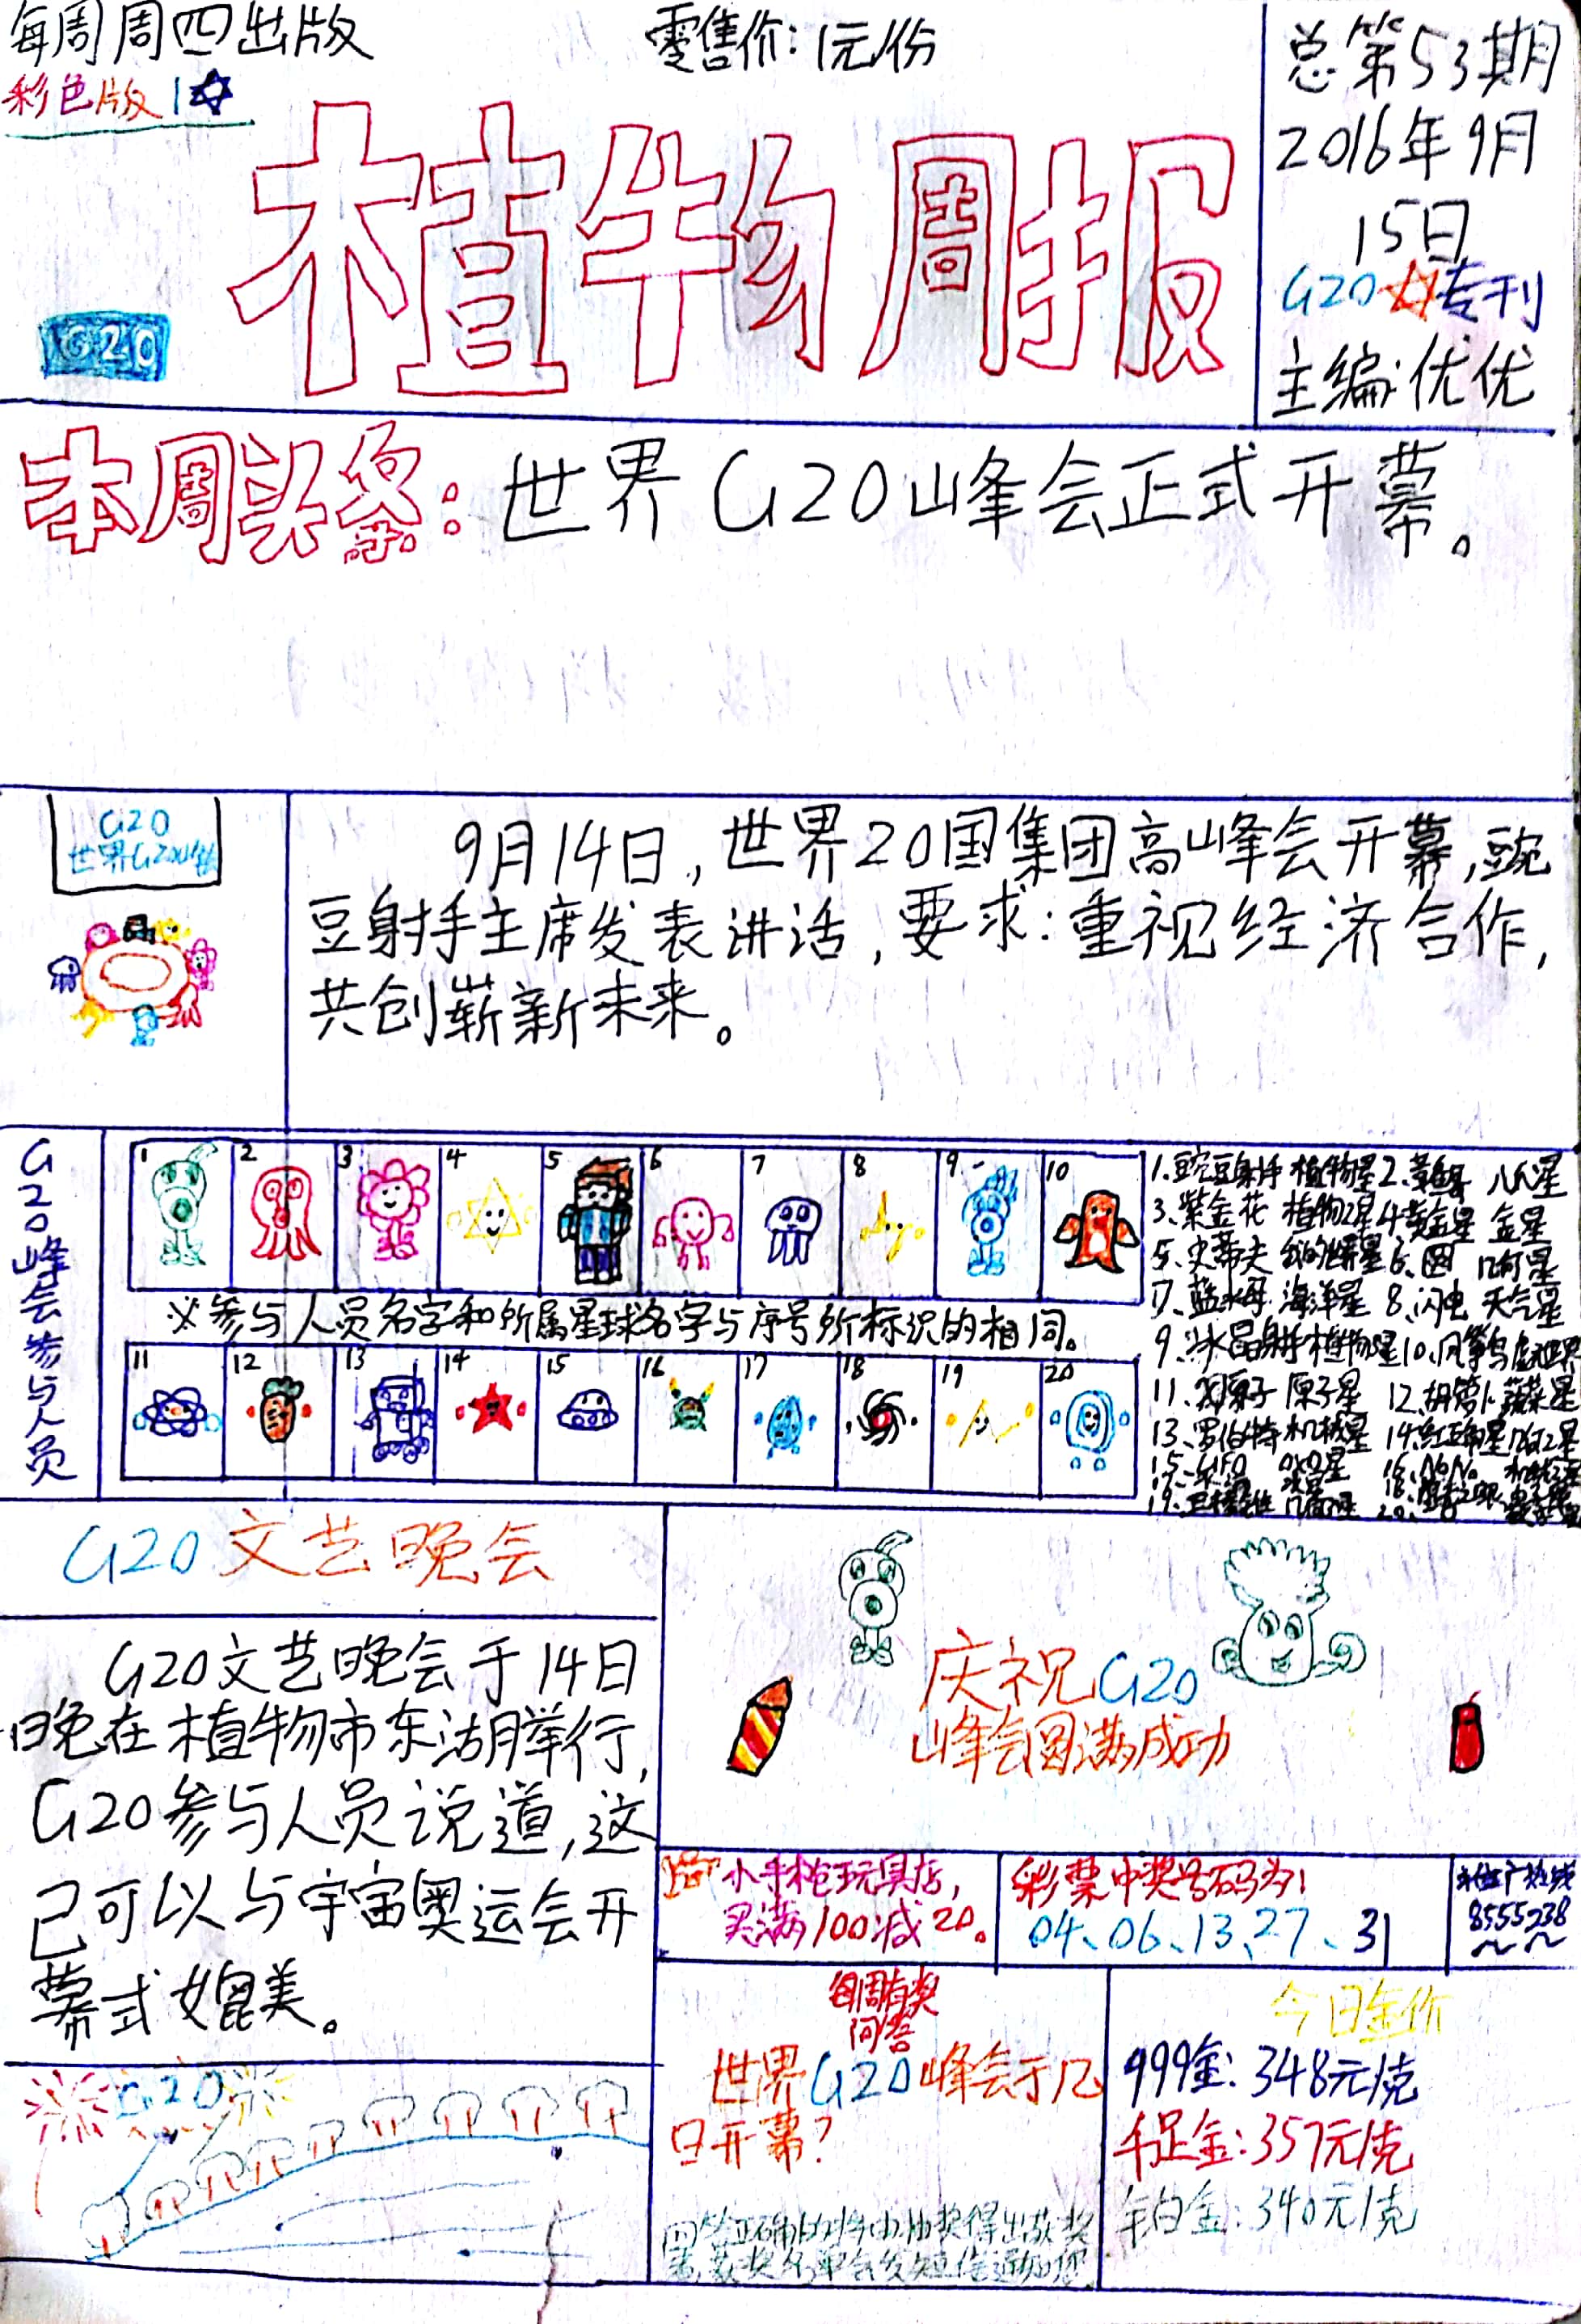 每周周四出版
零售价:1元/份
彩色版1
总第53期
2016年9月
15日
G20 专刊
主编:优优
植物周报
G20
本周头条:世界G20峰会正式开幕。
G20
世界G20
9月14日,世界20国集团高峰会开幕,豌
豆射手主席发表讲话,要求:重视经济合作,
共创崭新未来。
G20峰会参与人员
1 2 3 4 5 6 7 8 9 10
※参与人员名字和所属星球名字与序号所标识的相同。
11 12 13 14 15 16 17 18 19 20
1.豌豆射手 植物星 2. 八爪星
3、紫金花 植物星 4、黄金星 金星
5、史蒂夫 6、圆 几何星
7、蓝水母 海洋星 8、闪电 天气星
9、冰晶射手 植物星 10、
11、 原子 原子星 12、胡萝卜 蔬菜星
13、罗伯特 机械星 14、红五角星 几何星
15、UFO 16、NONO
17、 18、
19、 20、
G20文艺晚会
G20文艺晚会于14日
晚在植物市东湖举行,
G20参与人员说道,这
已可以与宇宙奥运会开
幕式媲美。
G20
庆祝G20
峰会圆满成功
小手枪玩具店,
买满100减20。
彩票中奖号码为:
04、06、13、27、31
热线
8555238
每周有奖
问答
世界G20峰会于几
日开幕?
回答正确的将由抽奖得出获奖
者,获奖名单会发短信通知您
今日金价
999金:348元/克
千足金:357元/克
铂金:340元/克